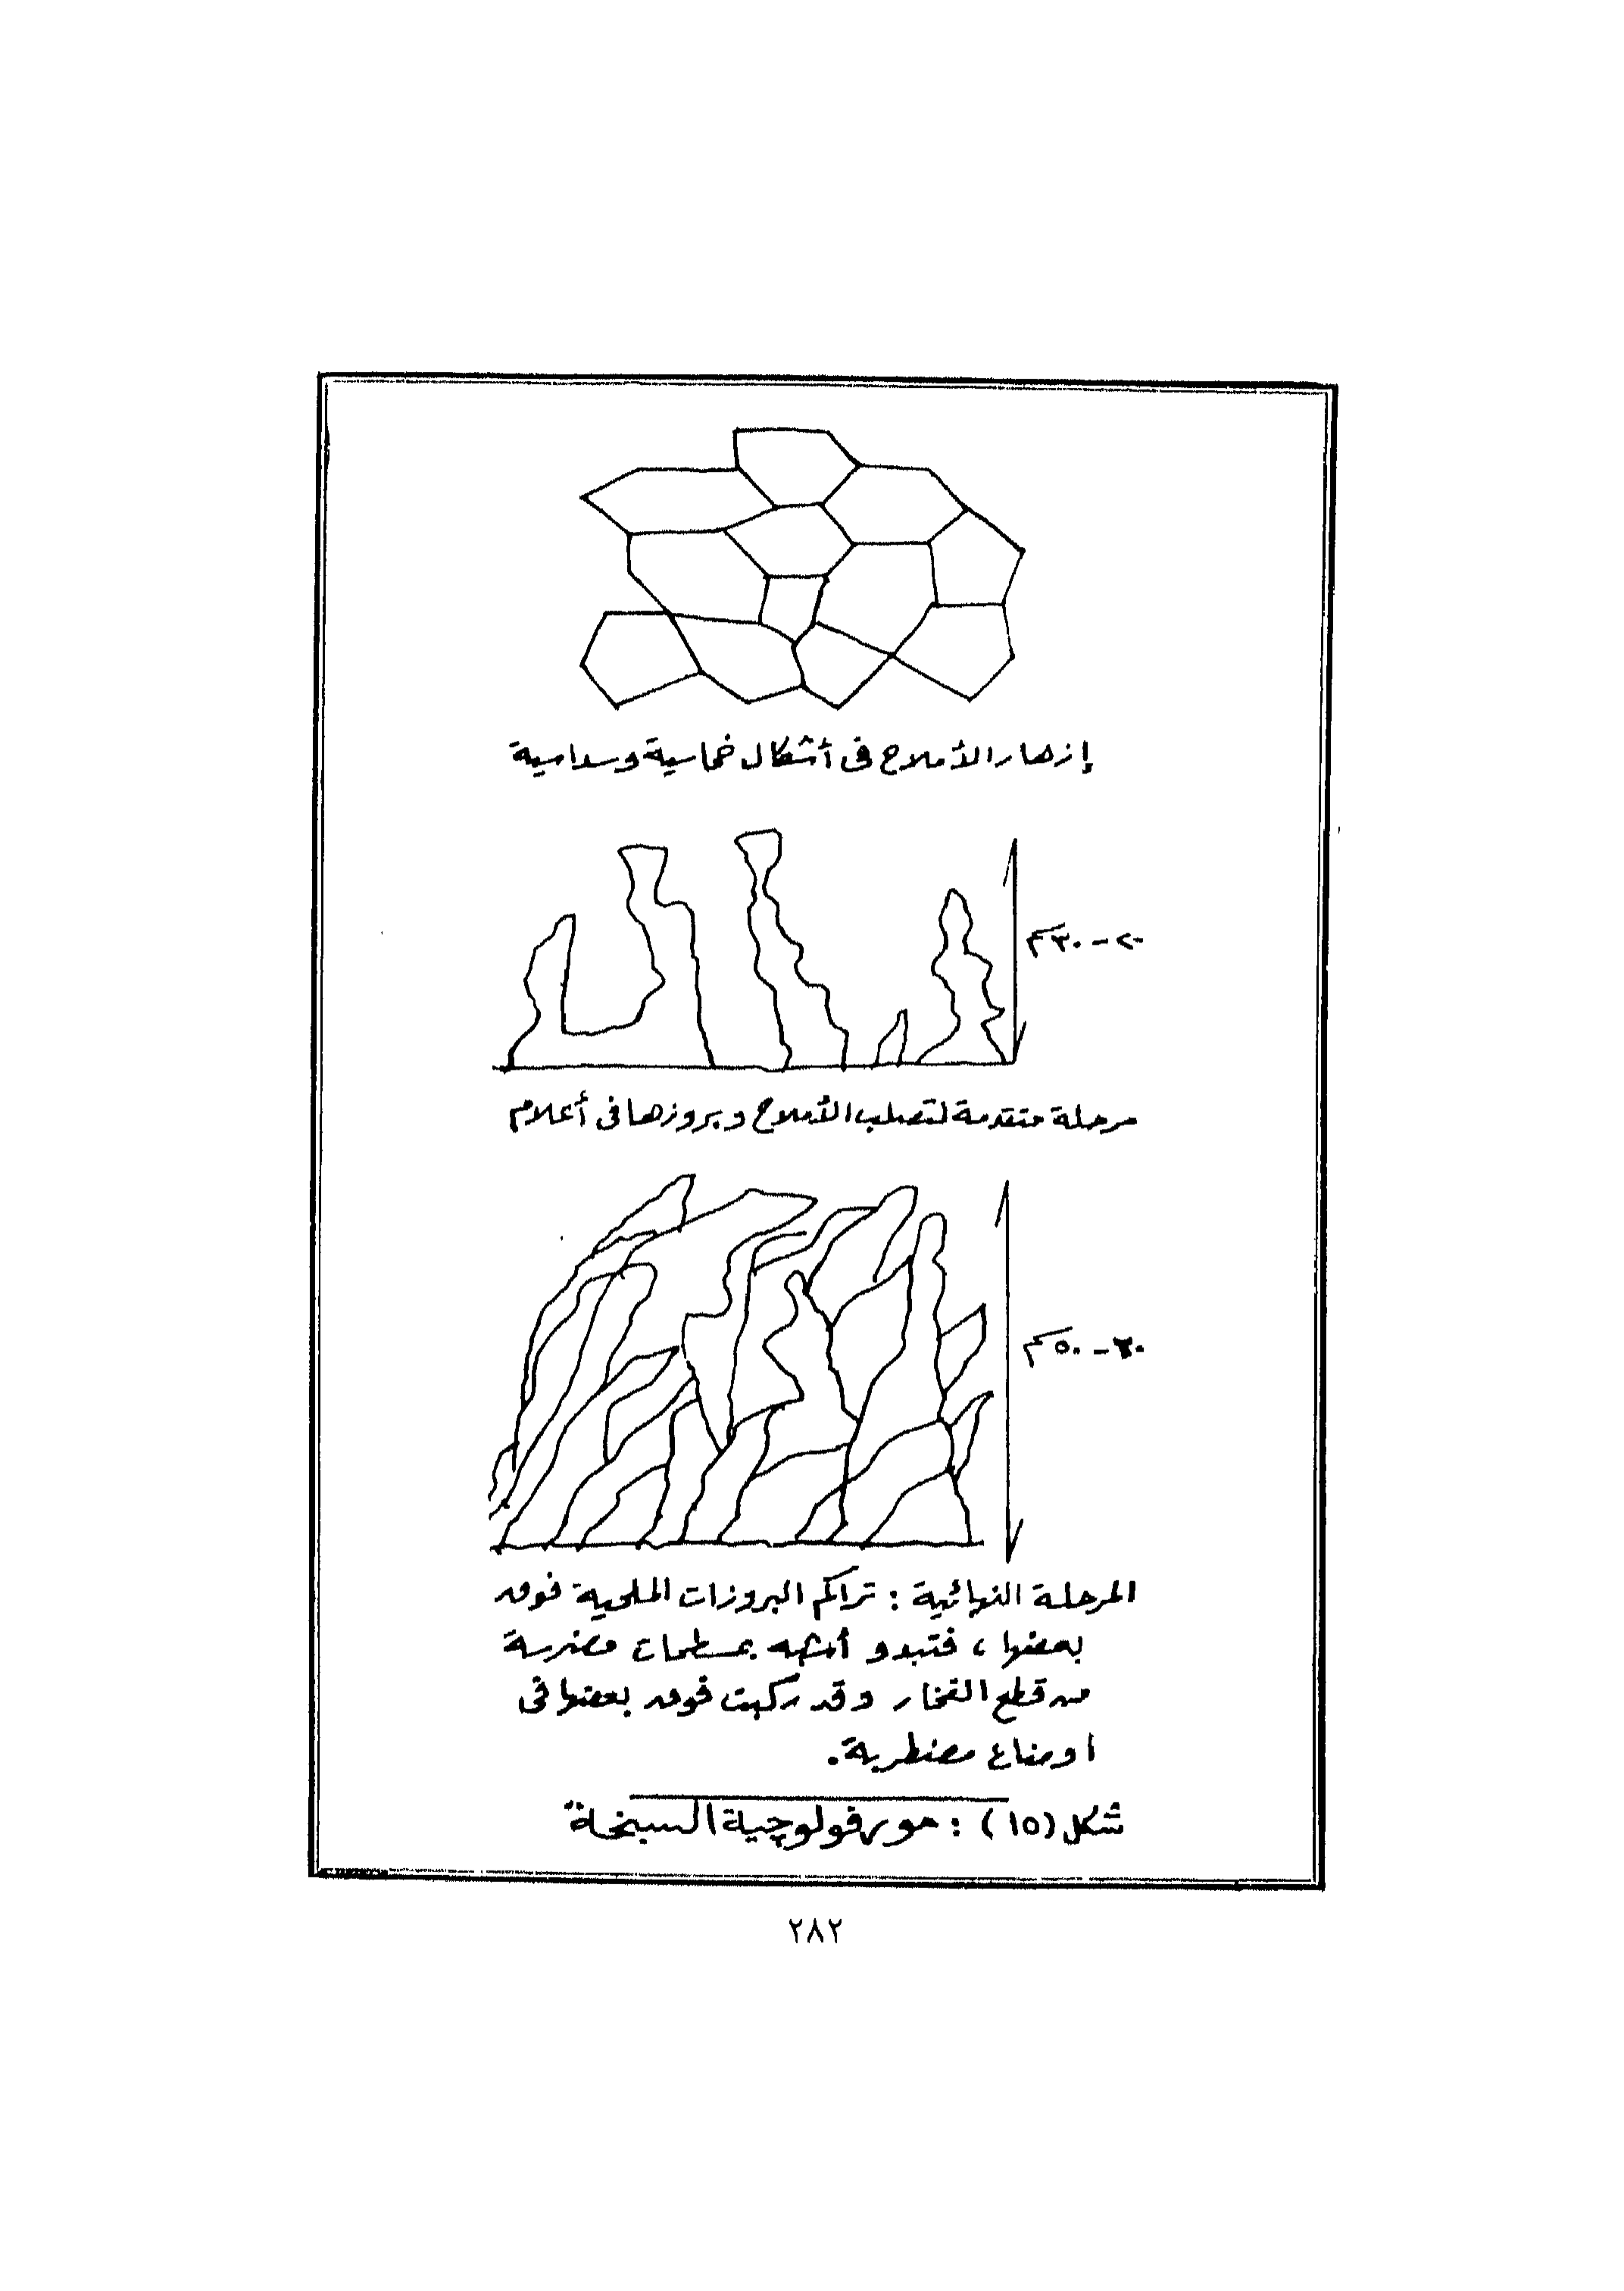 إزهار الأملاح فى أشكال خماسية وسداسية
٢٠-٣٠سم
مرحلة متقدمة لتصلب الأملاح وبروزها فى أعلام
٣٠-٥٠سم
المرحلة النهائية : تراكم البروزات الملحية فوق
بعضها ، فتبدو أشبه بمسطحات مضرسة
من قطع الفخار وقد ركبت فوق بعضها فى
اوضاع مضطربة.
شكل (١٥) : مورفولوچية السبخة
٢٨٢